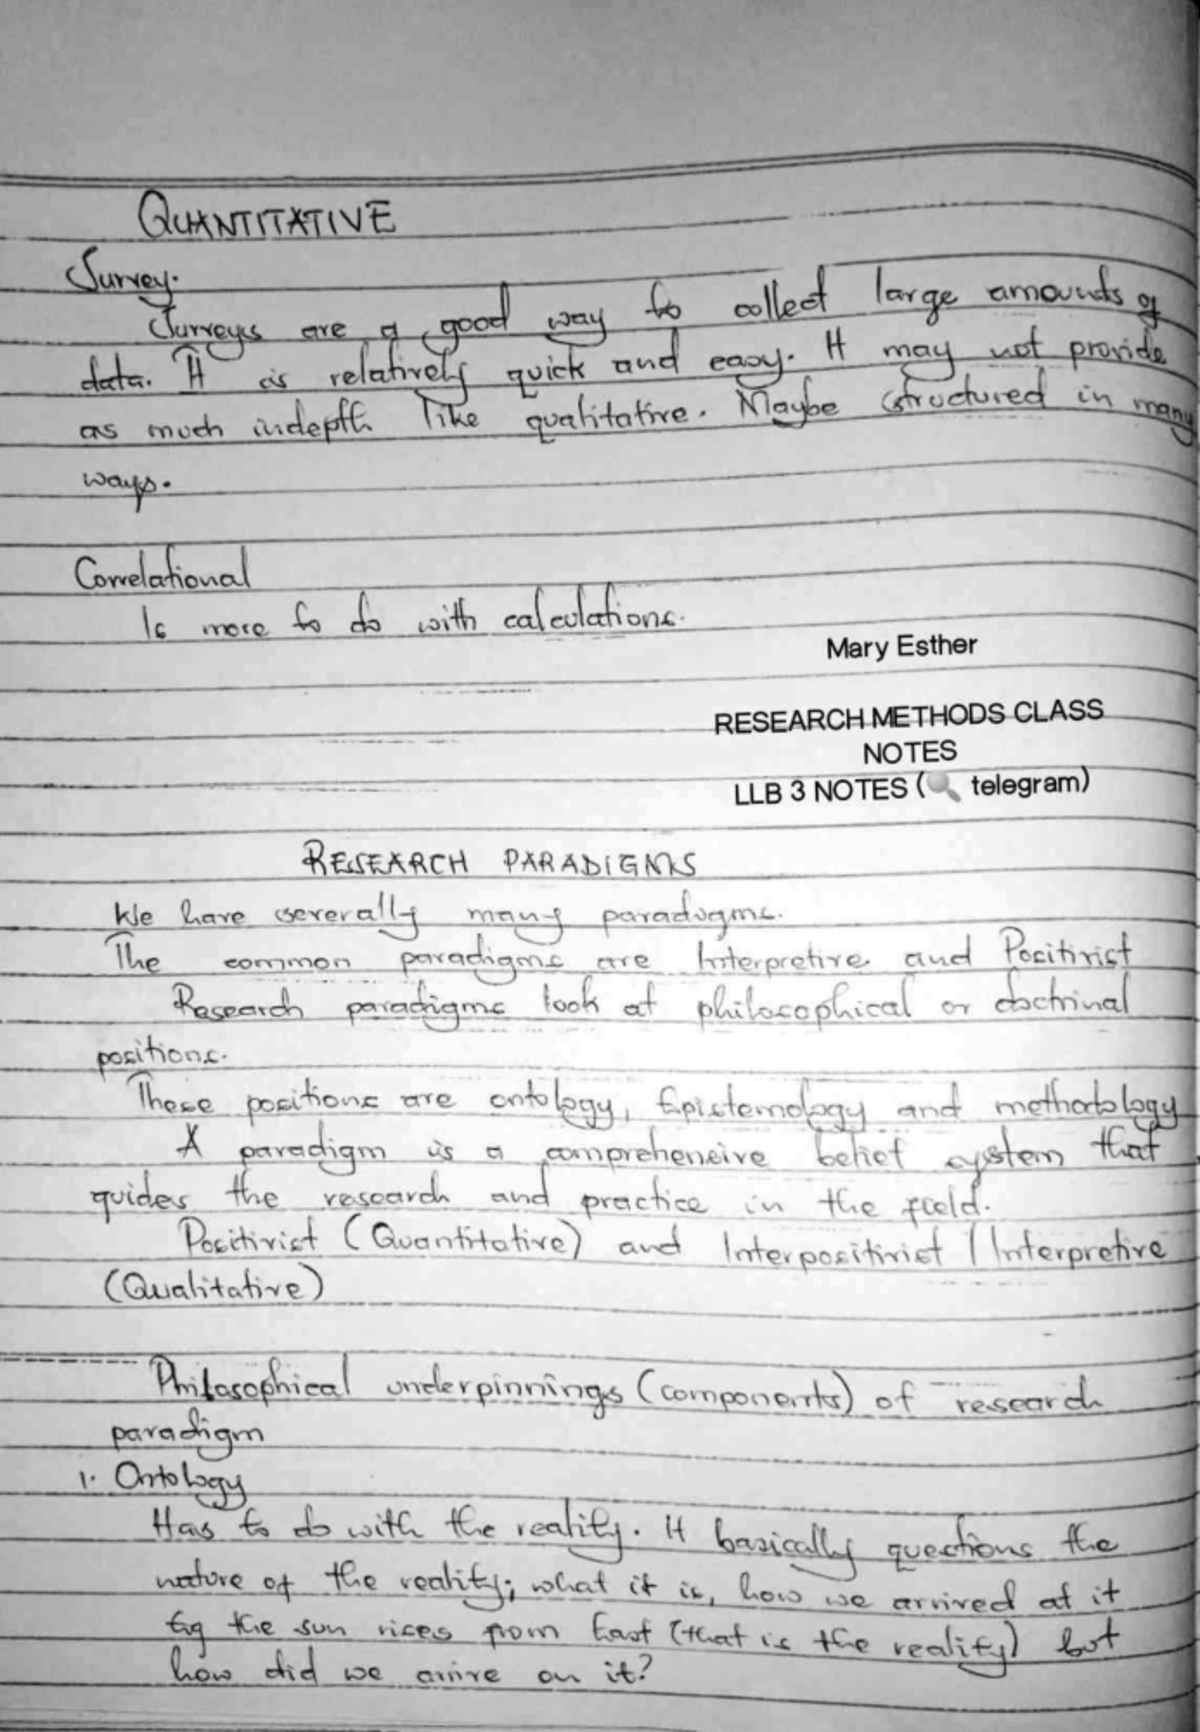 QUANTITATIVE
Survey.
Surveys are a good way to collect large amounts of
data. It is relatively quick and easy. It may not provide
as much indepth like qualitative. Maybe structured in many
ways.
Correlational
Is more to do with calculations.
Mary Esther
RESEARCH METHODS CLASS
NOTES
LLB 3 NOTES (🔍 telegram)
RESEARCH PARADIGMS
We have severally many paradigms.
The common paradigms are Interpretive and Positivist
Research paradigms look at philosophical or doctrinal
positions.
These positions are ontology, Epistemology and methodology
A paradigm is a comprehensive belief system that
guides the research and practice in the field.
Positivist (Quantitative) and Interpositivist / Interpretive
(Qualitative)
Philosophical underpinnings (components) of research
paradigm
1. Ontology
Has to do with the reality. It basically questions the
nature of the reality; what it is, how we arrived at it
Eg the sun rises from East (that is the reality) but
how did we arrive on it?